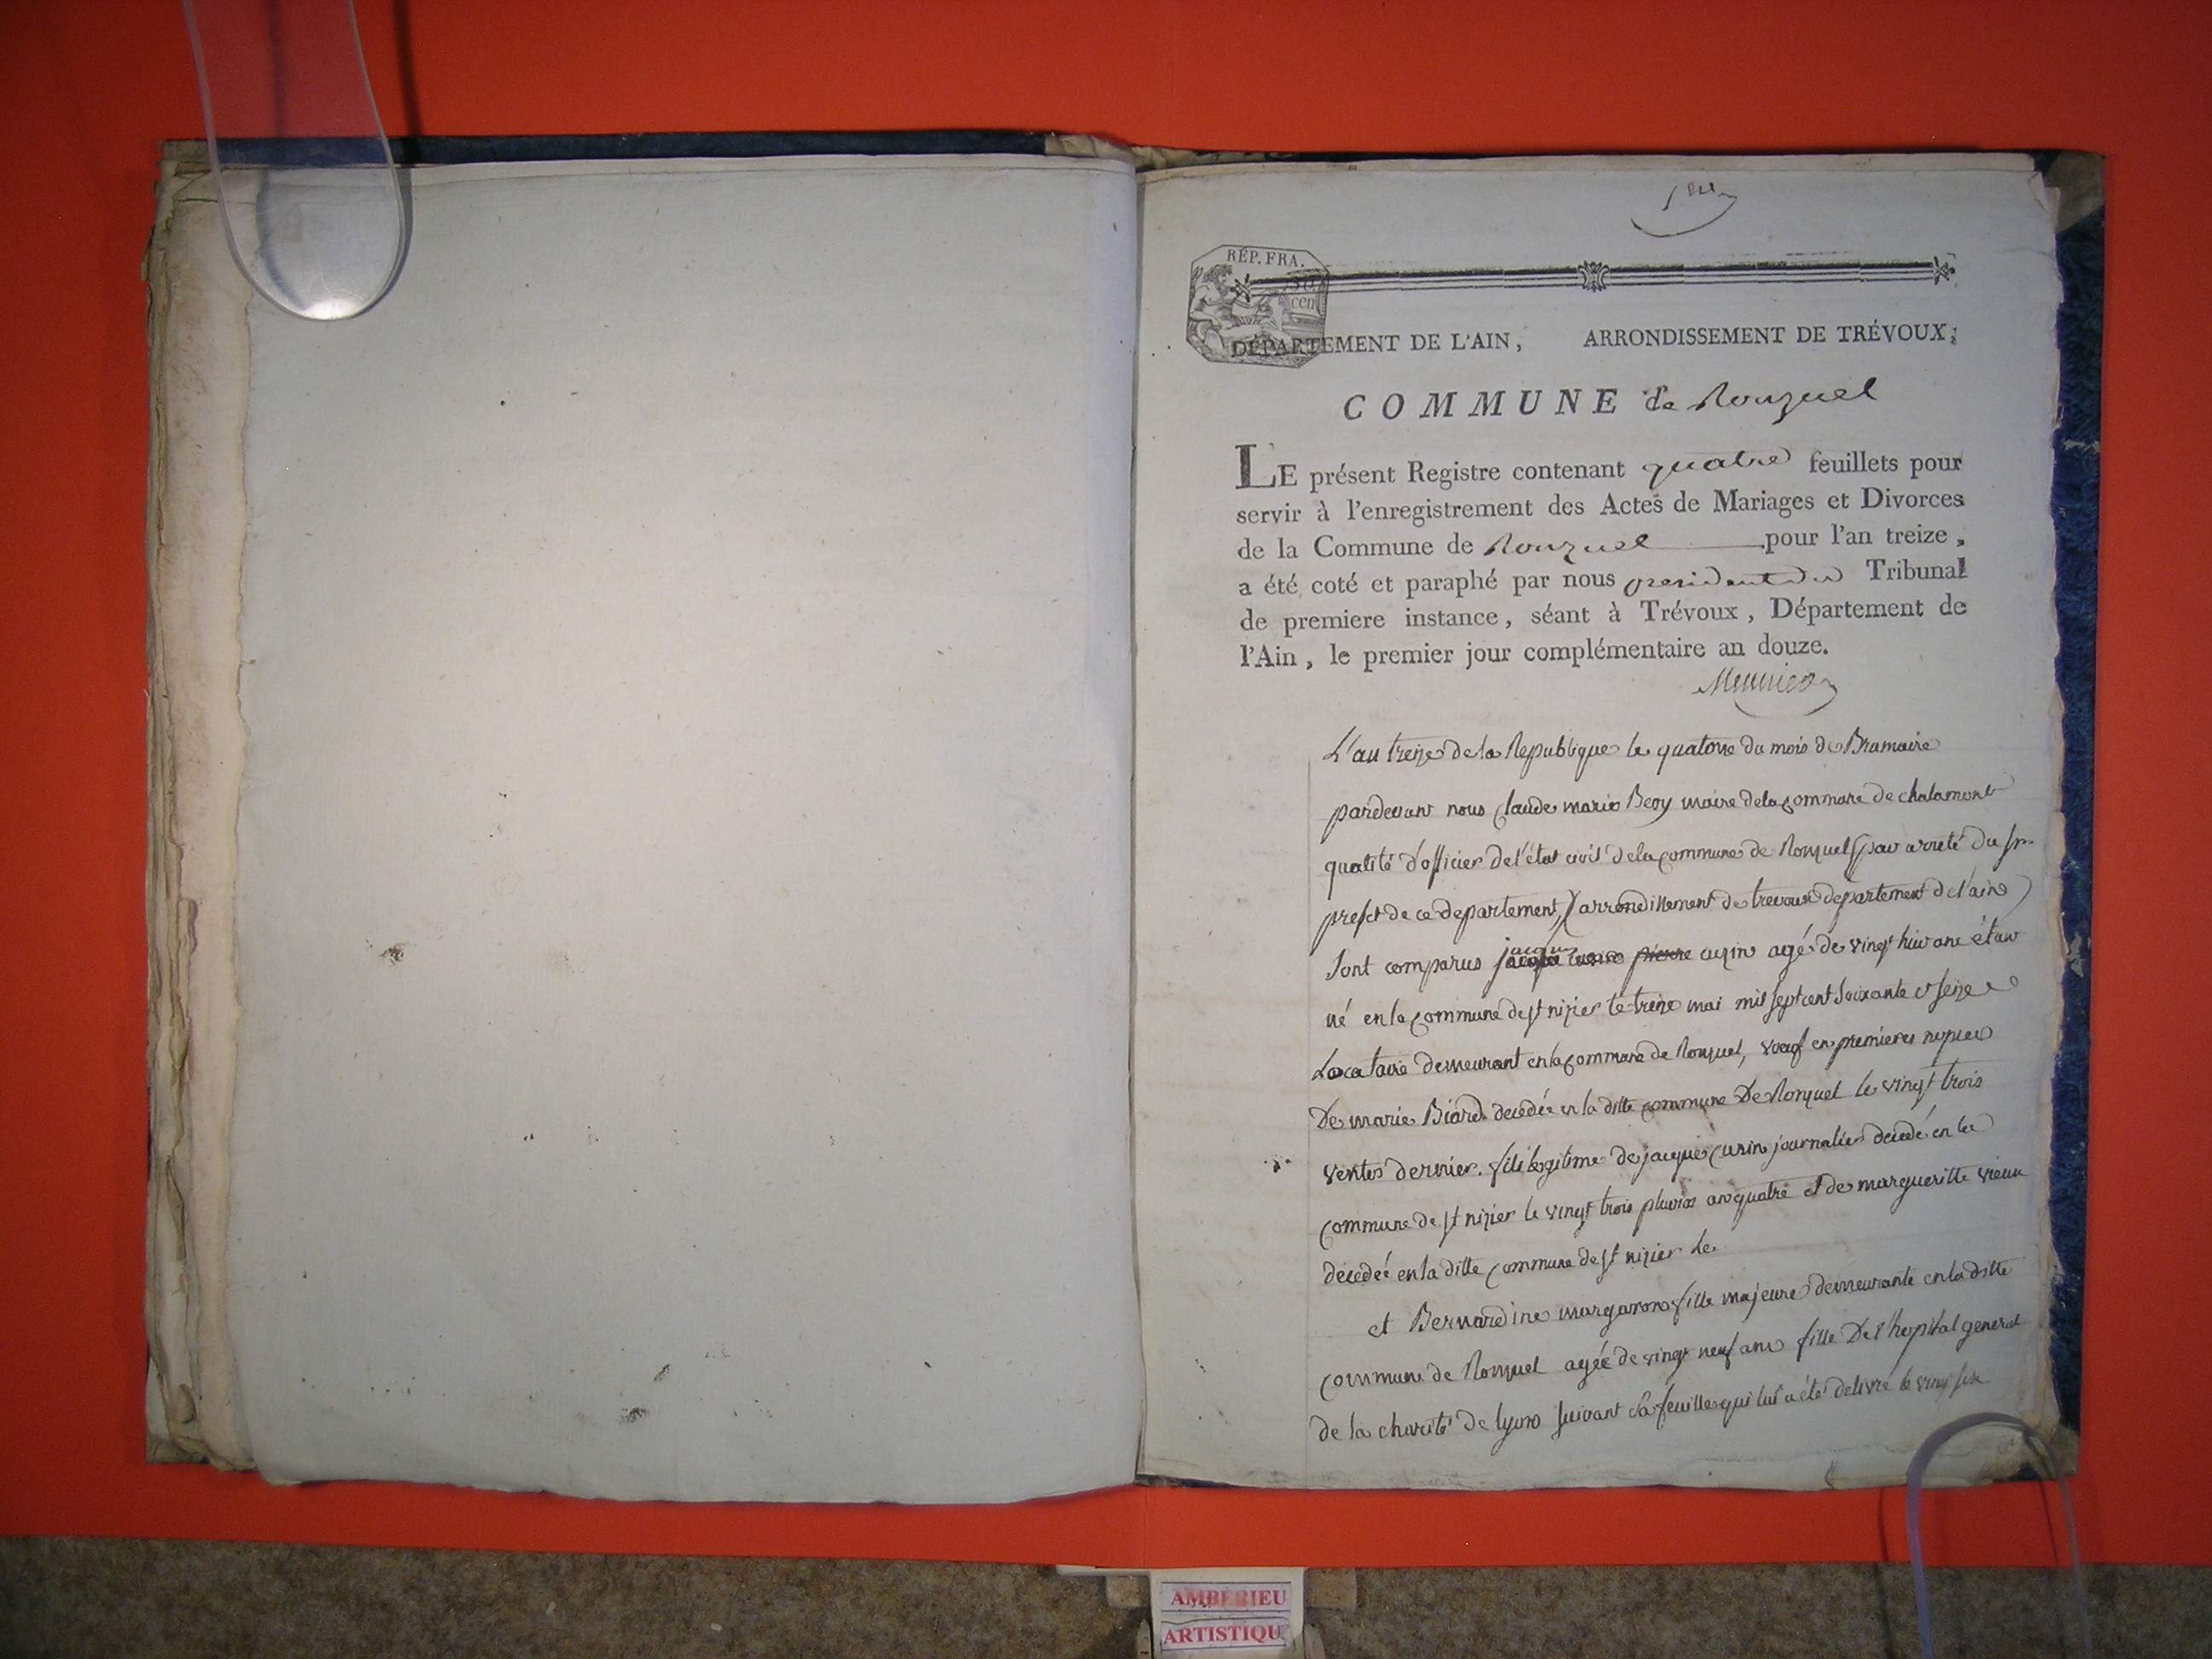 1er
RÉP. FRA.
50
cen
DÉPARTEMENT DE L'AIN, ARRONDISSEMENT DE TRÉVOUX;
COMMUNE de Ronzuel
LE présent Registre contenant quatre feuillets pour
servir à l'enregistrement des Actes de Mariages et Divorces
de la Commune de Ronzuel pour l'an treize,
a été coté et paraphé par nous president du Tribunal
de premiere instance, séant à Trévoux, Département de
l'Ain, le premier jour complémentaire an douze.
L'an treize de la Republique le quatorze du mois de Brumaire
pardevant nous Claude marie maire de la commune de chalamont
qualité d'officier de l'état civil de la commune de Ronzuel (par arreté du Sr
prefet de ce departement) (arrondissement de trevoux departement de l'ain)
Sont comparus jacques pierre curin agé de vingt huit ans étant
né en la commune de st nizier le treize mai mil sept cent soixante et seize
Locataire demeurant en la commune de Ronzuel, veuf en premieres nopces
De marie Biard decedée en la ditte commune De Ronzuel le vingt trois
ventos dernier. fils legitime de jacques curin journalier decedé en la
commune de st nizier le vingt trois pluvios an quatre et de margueritte vieux
decedée en la ditte commune de st nizier le
et Bernardine margaron fille majeure demeurante en la ditte
commune de Ronzuel agée de vingt neuf ans fille De l'hopital general
de la charité de lyon suivant sa feuille qui lui a été delivré le vingt six
AMBERIEU
ARTISTIQU